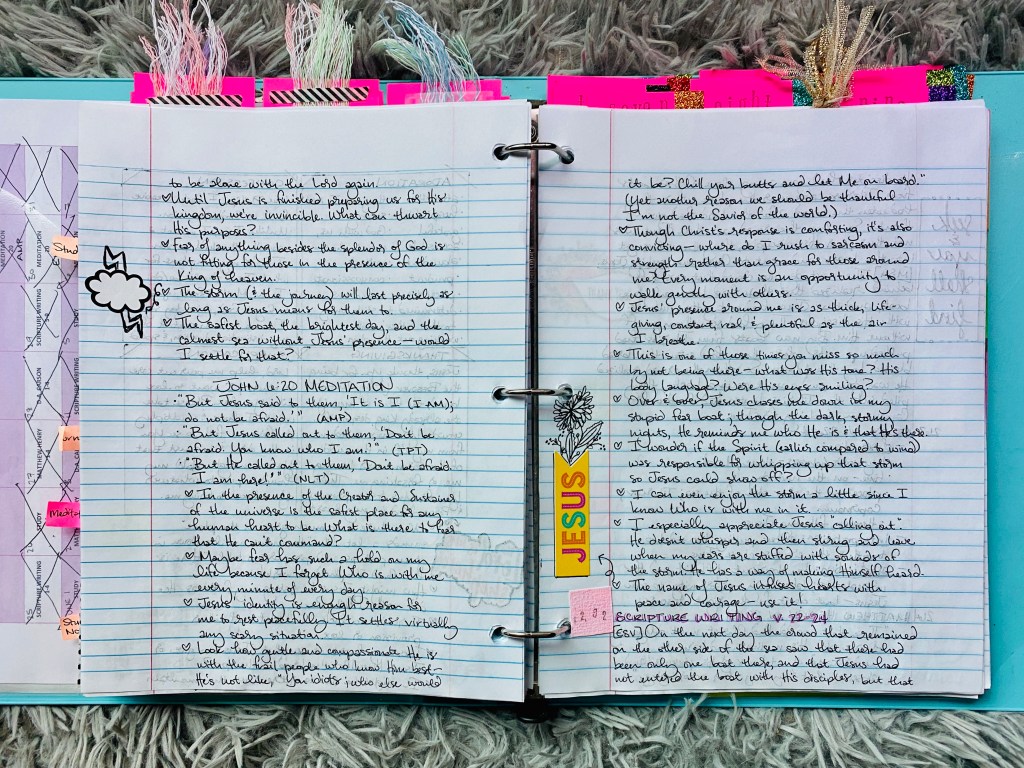 to be alone with the Lord again.
♡ Until Jesus is finished preparing us for His
kingdom, we're invincible. What can thwart
His purposes?
♡ Fear of anything besides the splendor of God is
not fitting for those in the presence of the
King of heaven.
♡ The storm (& the journey) will last precisely as
long as Jesus means for them to.
♡ The safest boat, the brightest day, and the
calmest sea without Jesus' presence — would
I settle for that?
JOHN 6:20 MEDITATION
· "But Jesus said to them, 'It is I (I AM);
do not be afraid.'" (AMP)
· "But Jesus called out to them, 'Don't be
afraid. You know who I am.'" (TPT)
· "But He called out to them, 'Don't be afraid.
I am here!'" (NLT)
♡ In the presence of the Creator and Sustainer
of the universe is the safest place for any
human heart to be. What is there to fear
that He can't command?
♡ Maybe fear has such a hold on my
life because I forget Who is with me
every minute of every day.
♡ Jesus' identity is enough reason for
me to rest peacefully. It settles virtually
any scary situation.
♡ Look how gentle and compassionate He is
with the frail people who know Him best—
He's not like, "You idiots; who else would
it be? Chill your butts and let Me on board."
(Yet another reason we should be thankful
I'm not the Savior of the world.)
♡ Though Christ's response is comforting, it's also
convicting — where do I rush to sarcasm and
strength rather than grace for those around
me? Every moment is an opportunity to
walk gently with others.
♡ Jesus' presence around me is as thick, life-
giving, constant, real, & plentiful as the air
I breathe.
♡ This is one of those times you miss so much
by not being there — what was His tone? His
body language? Were His eyes smiling?
♡ Over & over, Jesus chases me down in my
stupid fear boat; through the dark, stormy
nights, He reminds me who He is & that He's there.
♡ I wonder if the Spirit (earlier compared to wind)
was responsible for whipping up that storm
so Jesus could show off?
♡ I can even enjoy the storm a little since I
know Who is with me in it.
♡ I especially appreciate Jesus "calling out".
He doesn't whisper and then shrug and leave
when my ears are stuffed with sounds of
the storm. He has a way of making Himself heard.
♡ The name of Jesus infuses hearts with
peace and courage — use it!
SCRIPTURE WRITING V. 22-24
[ESV] On the next day the crowd that remained
on the other side of the sea saw that there had
been only one boat there, and that Jesus had
not entered the boat with His disciples, but that
JESUS
1.2.02
MEDITATION
SCRIPTURE WRITING
STUDY
MATTHEW HENRY
D.A. CARSON
SCRIPTURE WRITING
STUDY